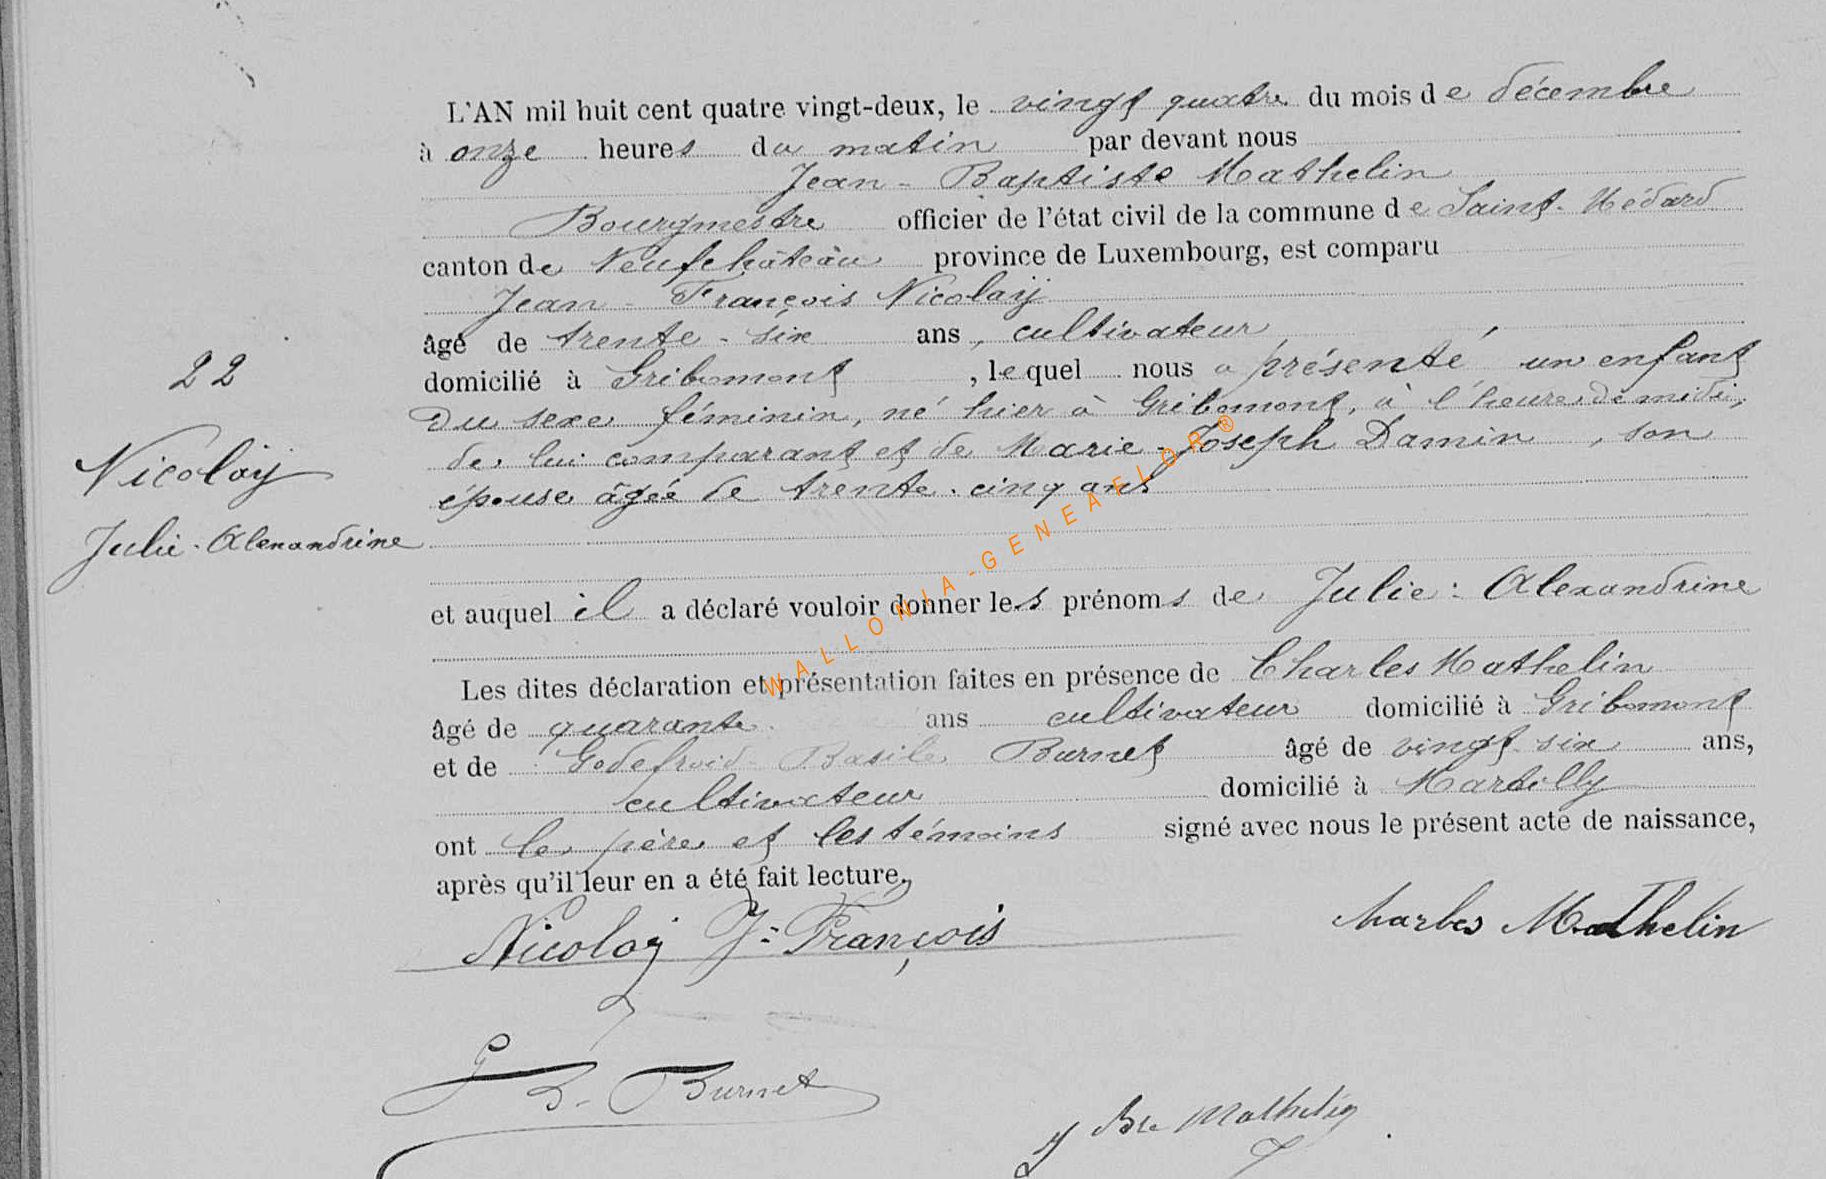 L'AN mil huit cent quatre vingt-deux, le vingt quatre du mois de décembre
à onze heures du matin par devant nous
Jean-Baptiste Mathelin
Bourgmestre officier de l'état civil de la commune de Saint-Médard
canton de Neufchâteau province de Luxembourg, est comparu
Jean-François Nicolaÿ
âgé de trente-six ans, cultivateur
22
domicilié à Gribomont, lequel nous a présenté un enfant
du sexe féminin, né hier à Gribomont, à l'heure de midi,
de lui comparant et de Marie-Joseph Damin, son
Nicolaÿ
épouse âgée de trente-cinq ans
Julie-Alexandrine
et auquel il a déclaré vouloir donner les prénoms de Julie-Alexandrine
Les dites déclaration et présentation faites en présence de Charles Mathelin
âgé de quarante ans cultivateur domicilié à Gribomont
et de Godefroid-Basile Burnet âgé de vingt-six ans,
cultivateur domicilié à Martilly
ont le père et les témoins signé avec nous le présent acte de naissance,
après qu'il leur en a été fait lecture.
Nicolaÿ J-François
Charles Mathelin
G B. Burnet
J Bte Mathelin
WALLONIA-GENEAFLOR®